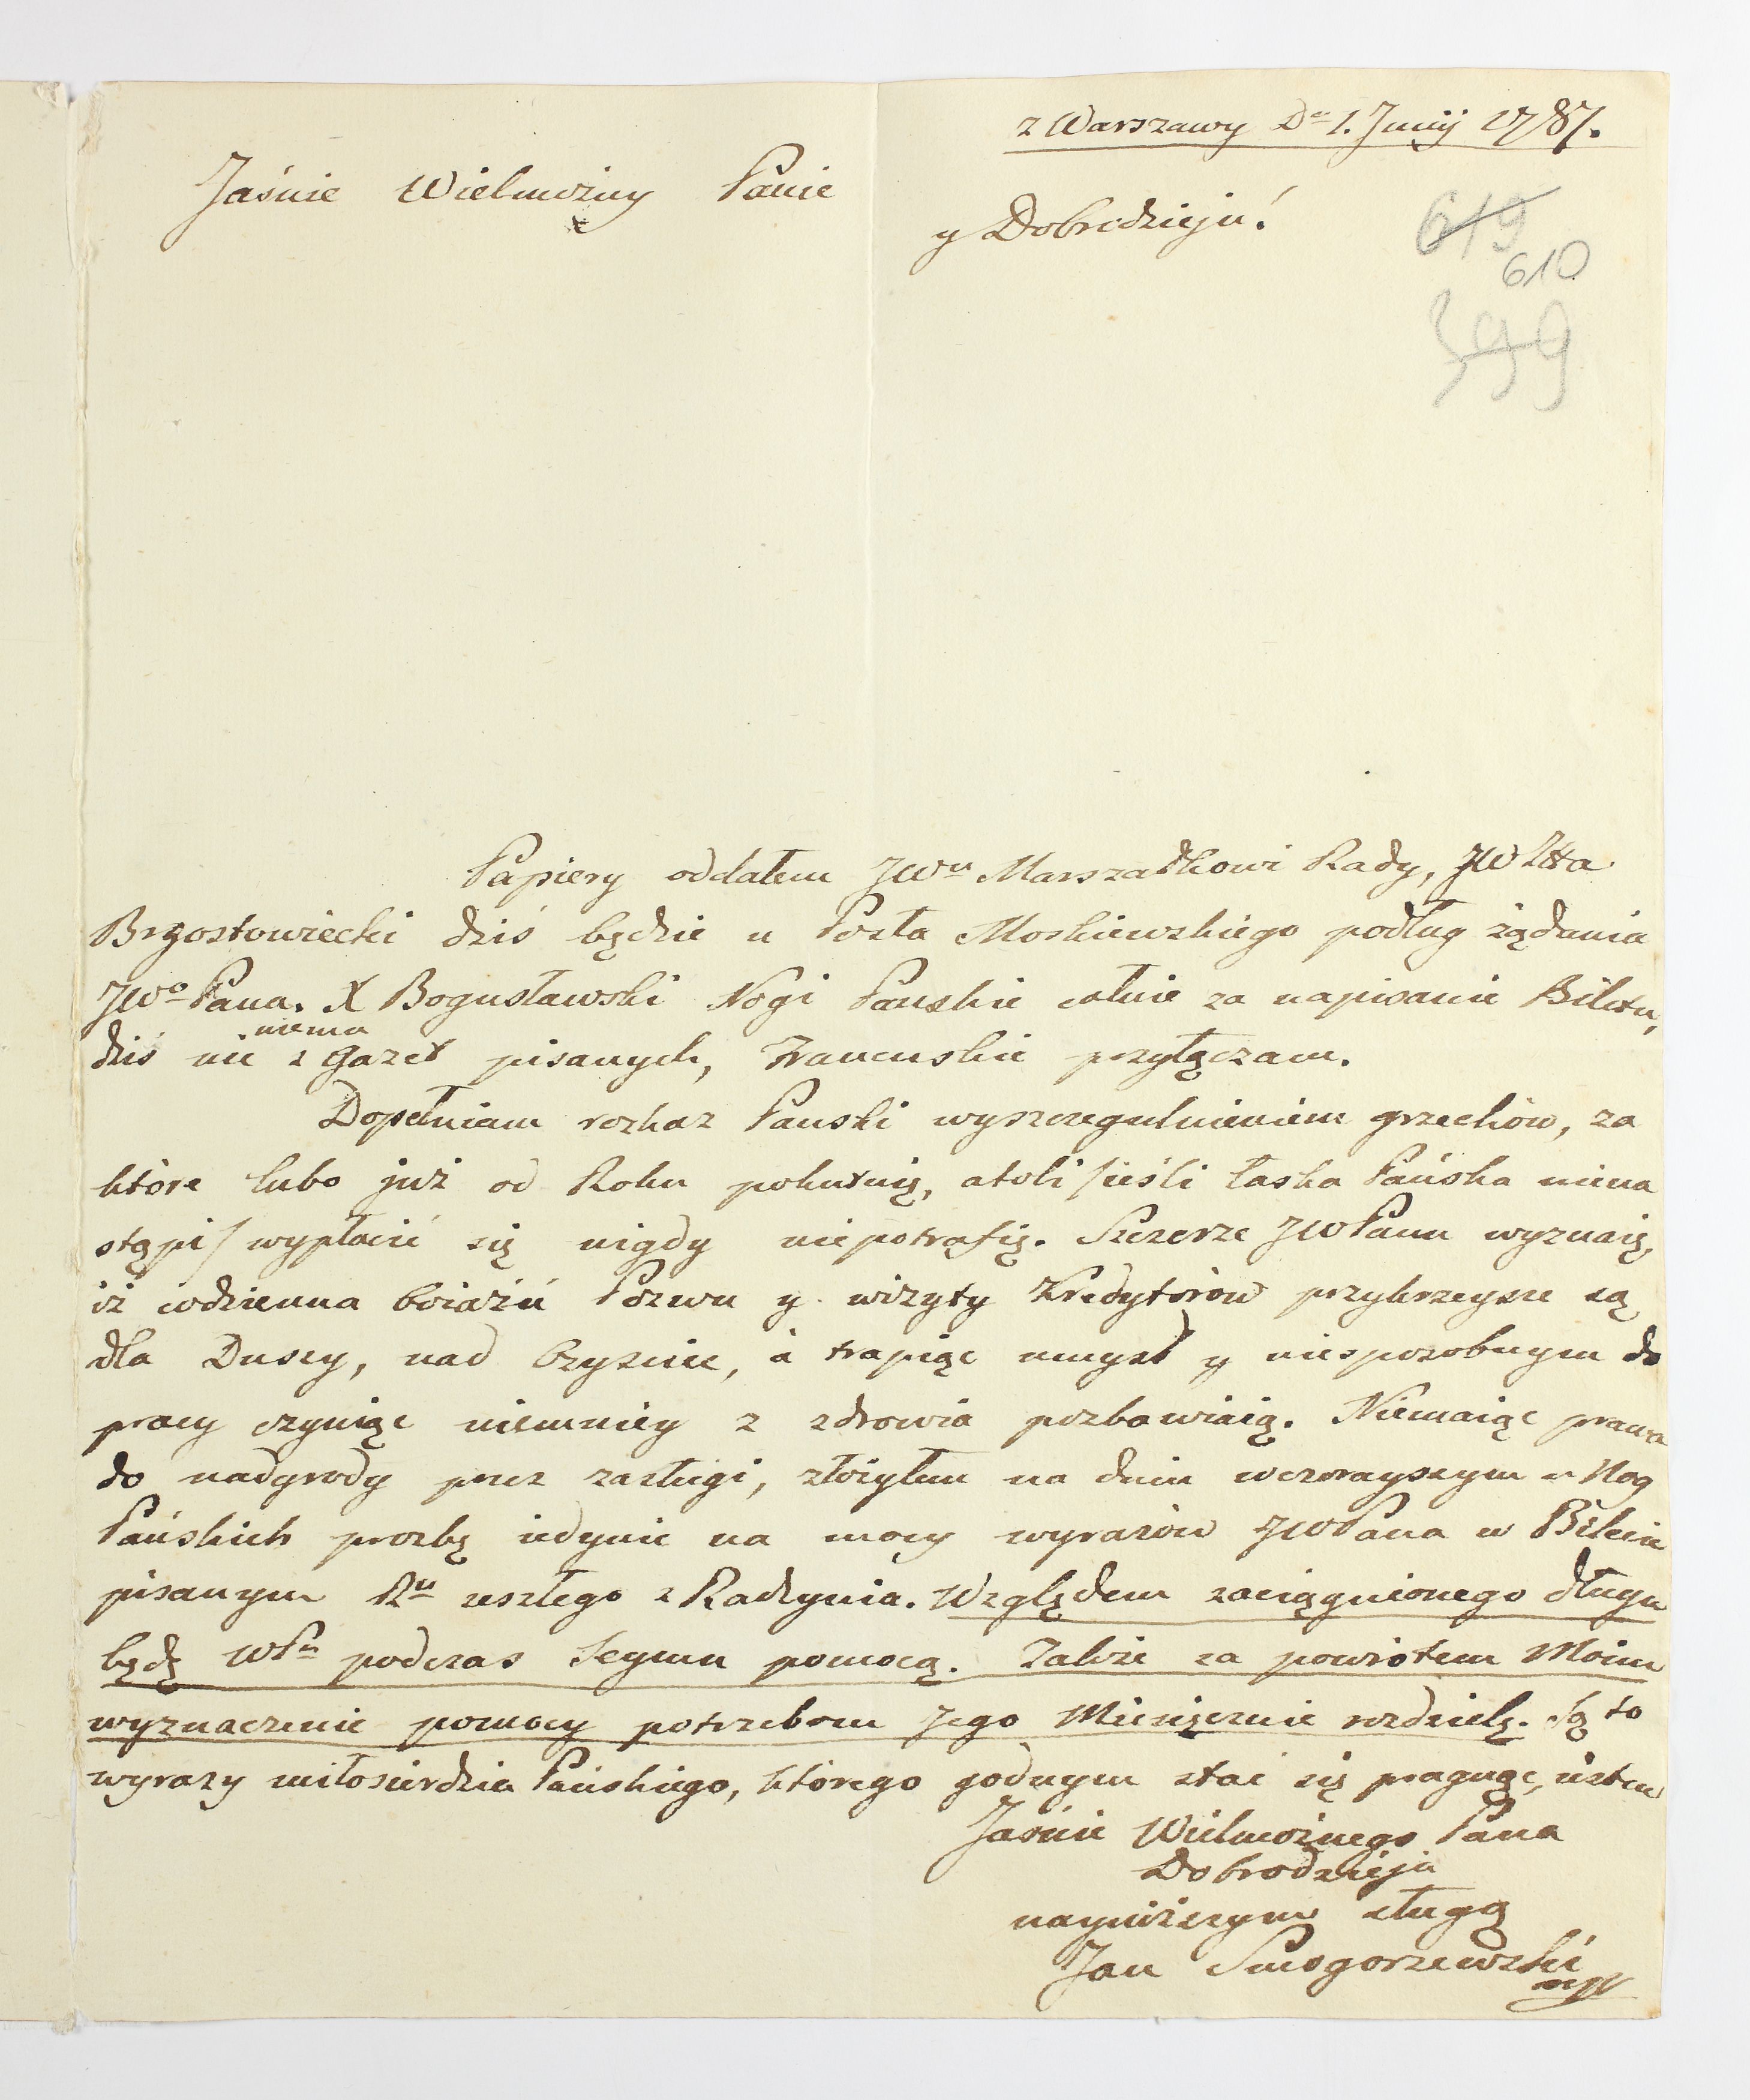 z Warszawy Dn 1. Junij 1787.
Jaśnie Wielmożny Panie
y Dobrodzieju!
619
610
399
Papiery oddałem JWu Marszałkowi Rady, JW
Brzostowiecki dziś będzie u Posła Moskiewskiego podług żądania
JWo Pana. X Bogusławski Nogi Pańskie całuie za napisanie Biletu,
niema
dziś nic z Gazet pisanych, Francuskie przyłączam.
Dopełniam rozkaz Panski wyszczegulnieniem grzechów, za
które lubo już od Roku pokutuię, atoli /ieśli łaska Pańska nie na
stąpi/ wypłacić się nigdy niepotrafię. Szczerze JWPanu wyznaię,
iż codzienna boiaźń Pozwu y wizyty Kredytorów przykrzeysze są
dla Duszy, nad Czysciec, a trapiąc umysł y niesposobnym do
pracy czyniąc niemniey z zdrowia pozbawiaią. Niemaiąc prawa
do nadgrody przez zasługi, złożyłem na dniu wczorayszym u Nog
Pańskich prozbę iedynie na mocy wyrazów JWPana w Bilecie
pisanym Ru zeszłego z Radzynia. Względem zaciągnionego długu
będę WPu podczas Seymu pomocą. Także za powrotem Moim
wyznaczenie pomocy potrzebom Jego Miesięcznie rozdzielę. Są to
wyrazy miłosierdzia Pańskiego, którego godnym stać się pragnąc, iestem
Jaśnie Wielmożnego Pana
Dobrodzieja
nayniższym sługą
Jan Smogorzewski
mp